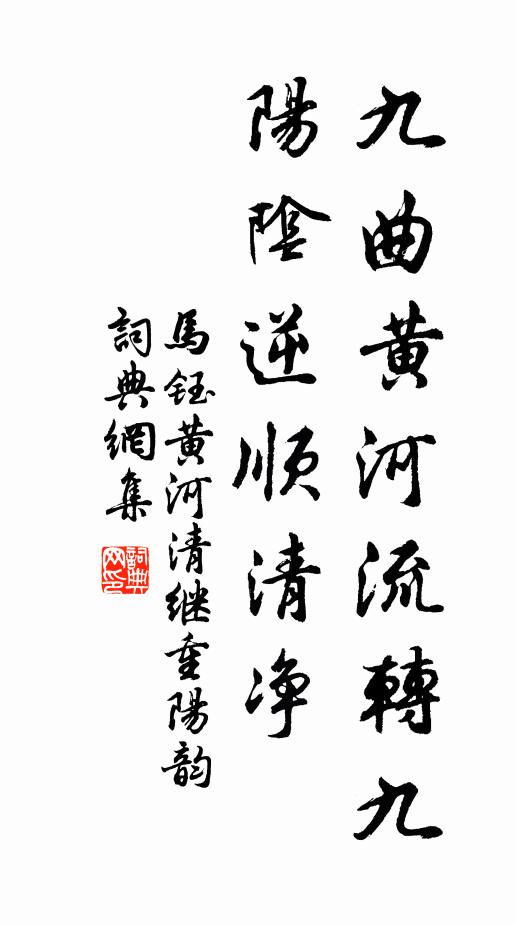 九曲黄河流轉九
陽陰逆順清净
馬鈺黄河清继重陽韵
詞典網集
詞典網印